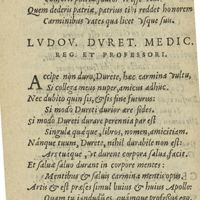 Quem dederis patriæ, patrius tibi reddet honorem
Carminibus vates qua licet usque suis.
LVDOV. DVRET. MEDIC.
REG. ET PROFESSORI.
Accipe non duro, Durete, hæc carmina vultu,
Si collega meus nuper, amicus adhuc.
Nec dubito quin sis, & sis sine fine futurus:
Si modo Dureti durior ære fides.
Si modo Dureti durare perennia par est
Singula quæque, libros, nomen, amicitiam.
Nanque tuum, Durete, nihil durabile non est:
Arctuique, ut durent corpora salua, facit.
Et salua saluo durant in corpore mentes:
Mentibus & saluis carmina mentis opus.
Artis & est præses simul huius & huius Apollo: